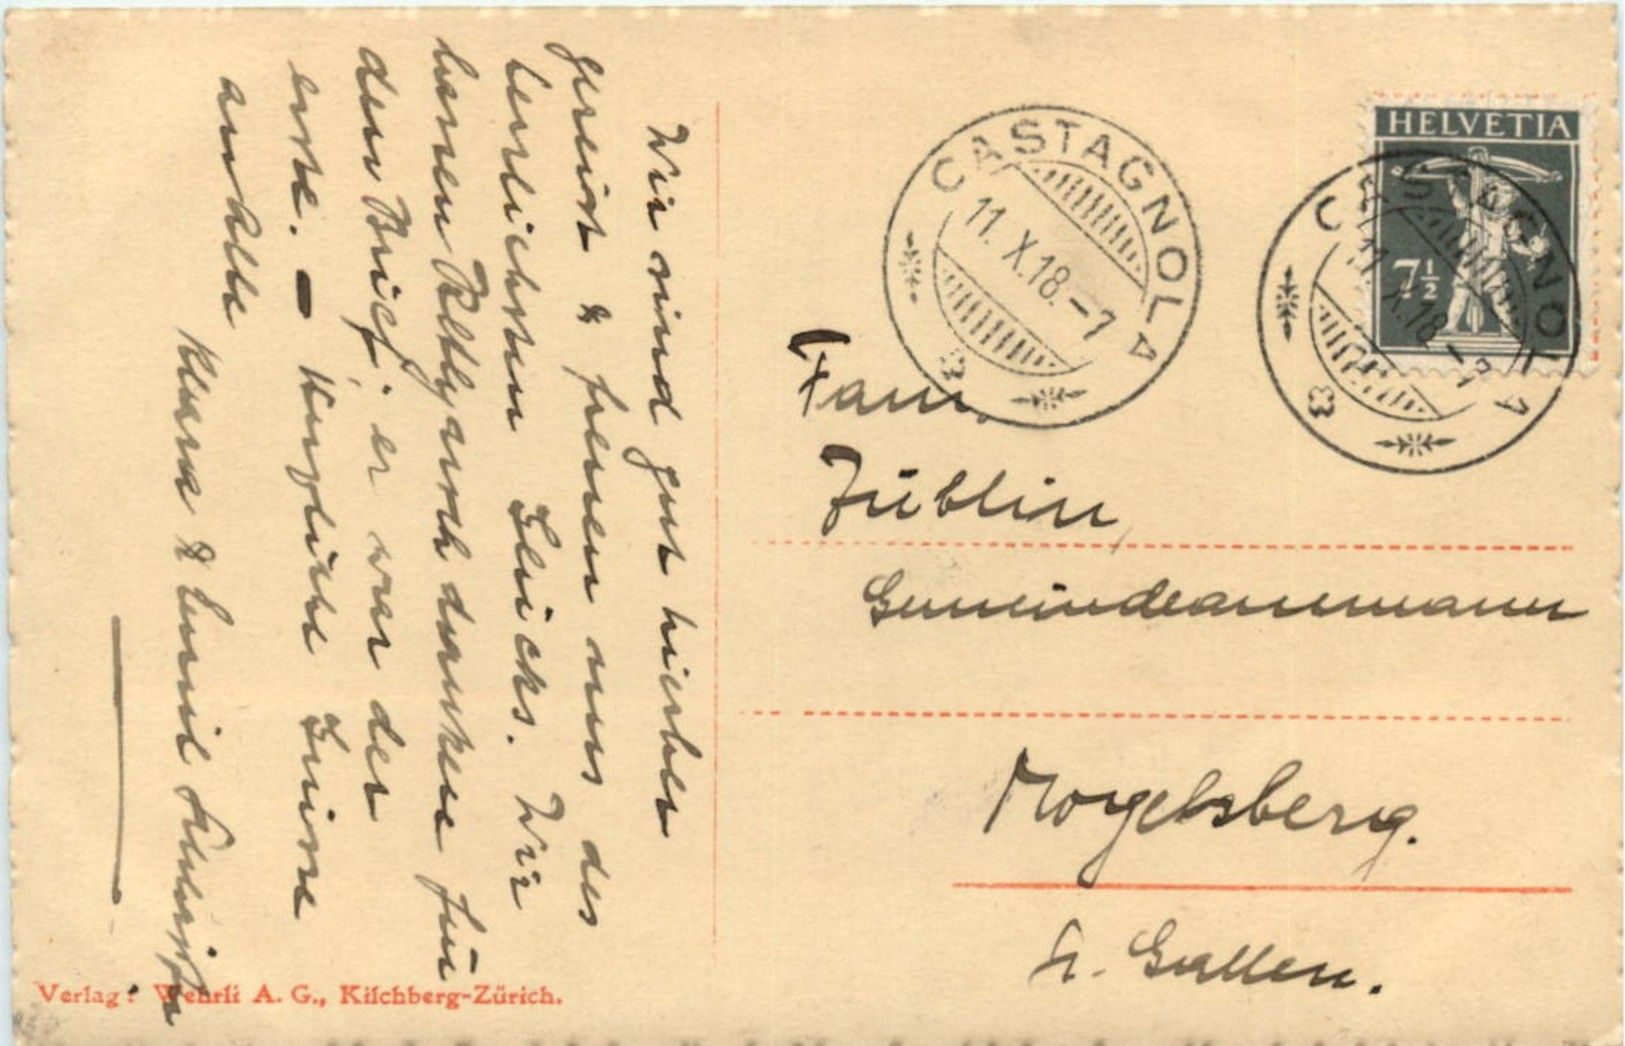 Wir sind gut hierher
gereist & freuen uns des
herrlichsten Glückes. Wir
haben Rettly auch danken für
den Brief; er war der
erste. – Herzliche Grüsse
an Alle
Klara & Emil
CASTAGNOLA
11. X. 18. – 7
HELVETIA
7½
CASTAGNOLA
11. X. 18. – 7
Fam.
Züblin
Gemeindeammann
Mogelsberg.
St. Gallen.
Verlag: Wehrli A. G., Kilchberg-Zürich.